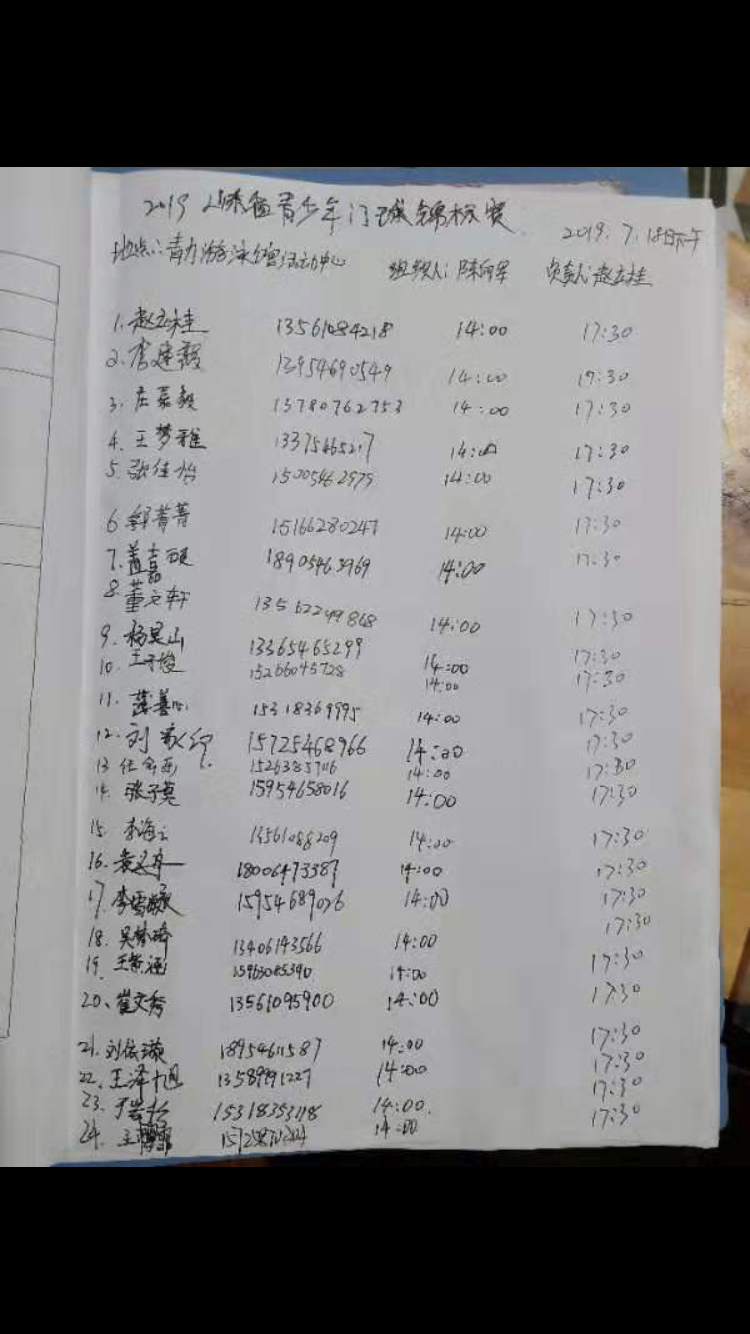 2019 山东省青少年门球锦标赛
2019.7.18日下午
地点:青少 游泳 活动中心 组织人:陈向军 负责人:赵立桂
1.赵立桂 13561084218 14:00 17:30
2.李建毅 13954690549 14:00 17:30
3.庄嘉毅 13780762753 14:00 17:30
4.王梦雅 14:00 17:30
5.张佳怡 15005462979 14:00 17:30
6.郭菁菁 15166280247 14:00 17:30
7.盖嘉 18905463969 14:00 17:30
8.董文轩 13562299868 14:00 17:30
9.杨昊山 13365465299 14:00 17:30
10.王子俊 15266045728 14:00 17:30
11.薄善心 15318369995 14:00 17:30
12.刘家 15725468966 14:00 17:30
13 任 14:00 17:30
14.张子莫 15954658016 14:00 17:30
15.李海 13561088209 14:00 17:30
16.袁文 18006473387 14:00 17:30
17.李雪 15954689026 14:00 17:30
18.吴梦琦 13406193566 14:00 17:30
19.王紫涵 14:00 17:30
20、崔文秀 13561095900 14:00 17:30
21.刘依璇 18954611587 14:00 17:30
22.王泽 13589991227 14:00 17:30
23. 15318353118 14:00. 17:30
24.王 14:00 17:30